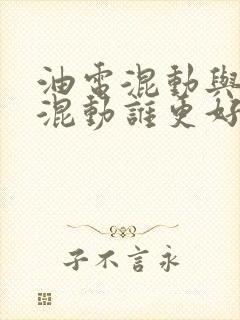 油電混動與
混動誰更好
子不言永